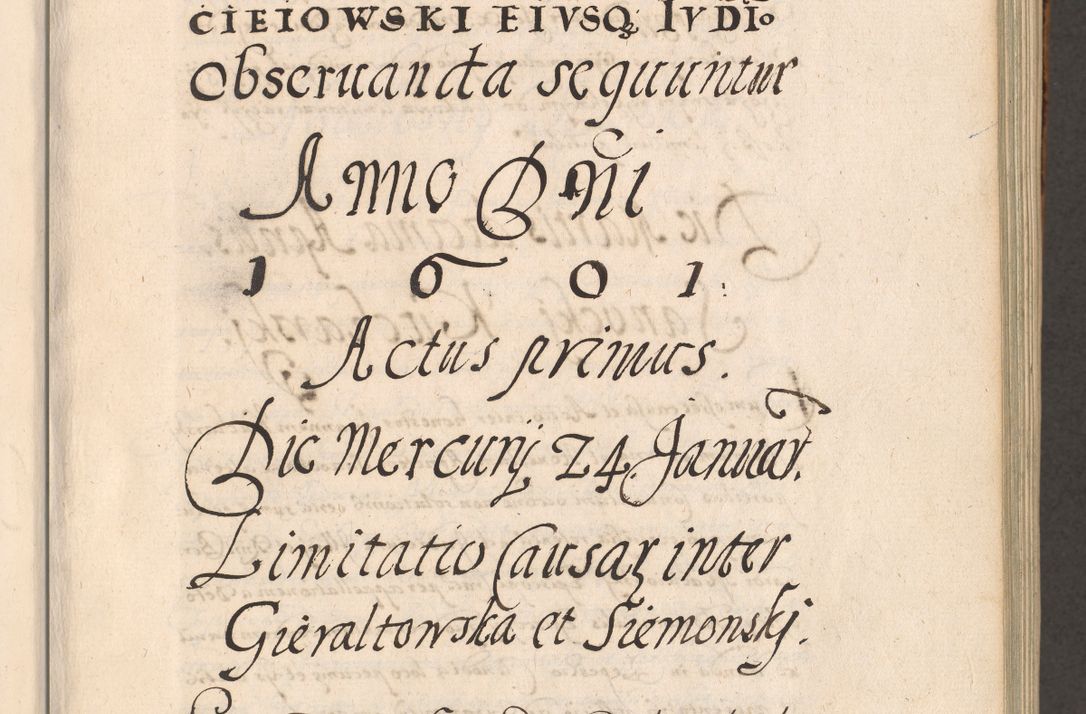 CIEIOWSKI EIVSQ3 IVDIo
Obseruanda sequuntur
Anno Dñi
1601.
Actus primus.
Die Mercurij 24 Januar.
Limitatio Causaꝝ inter
Gieraltowska et Siemonskj.